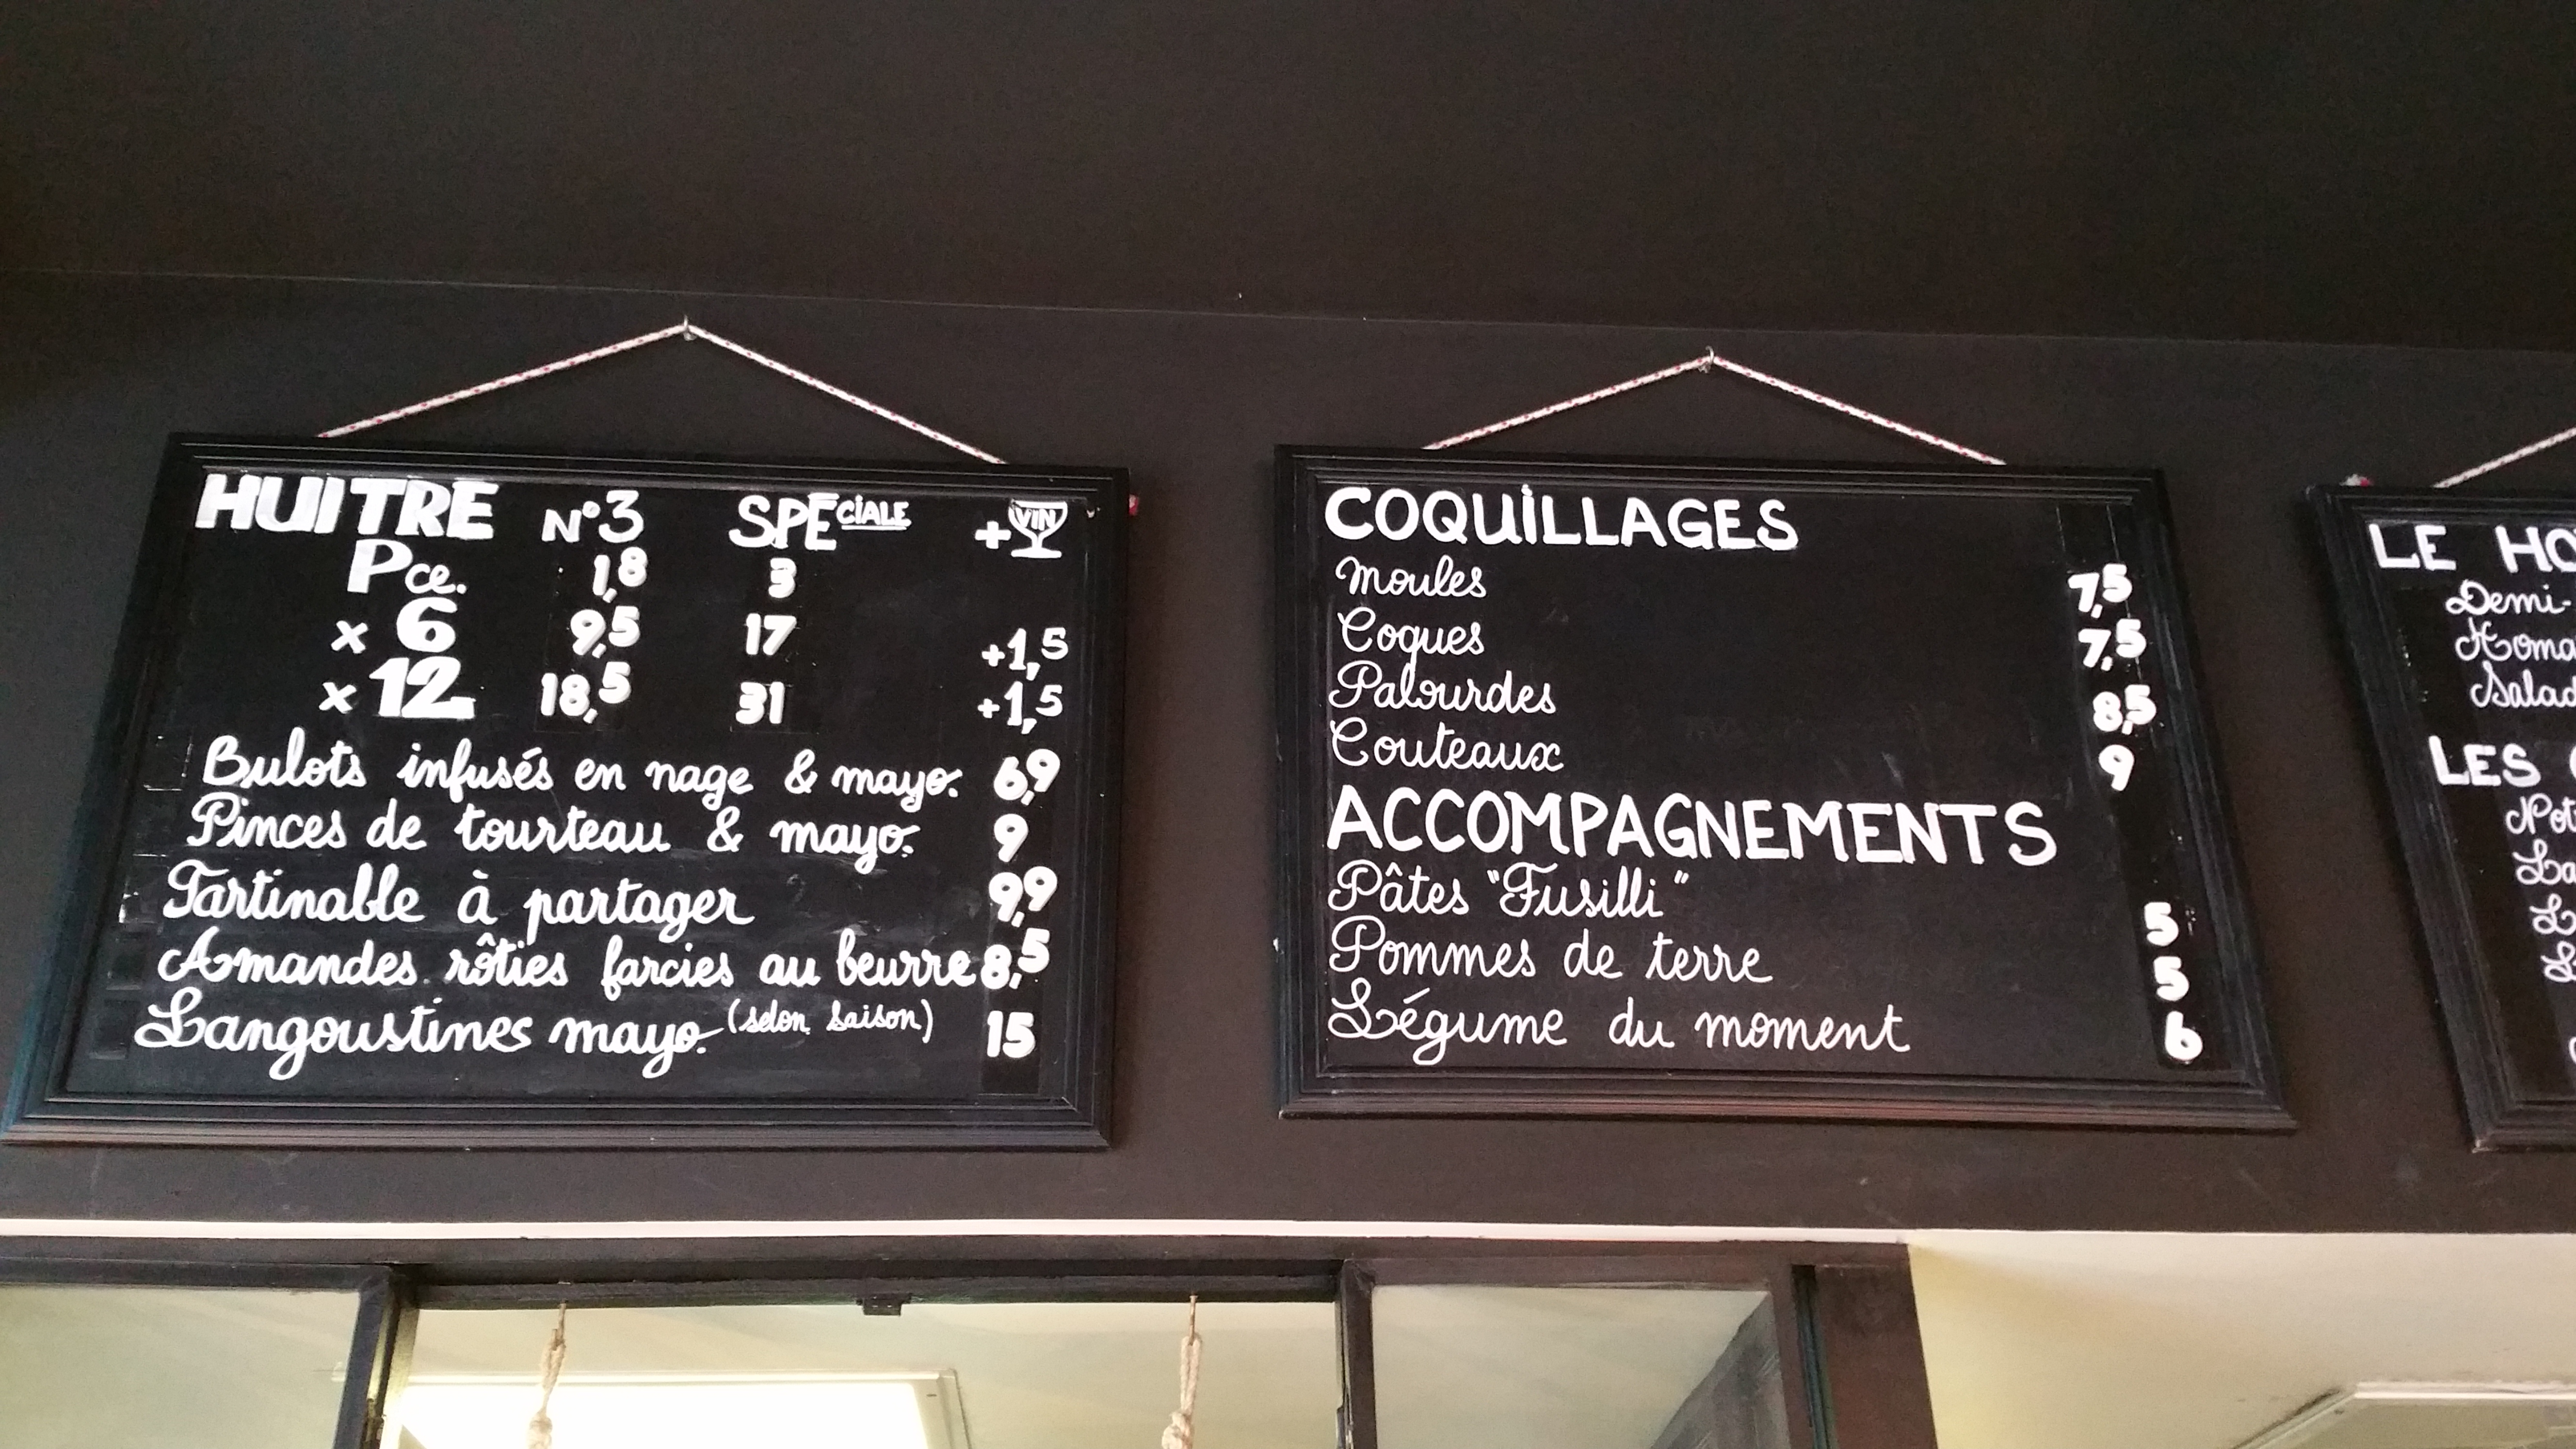 HUITRE N°3 SPECIALE + VIN
Pce. 1,8 3
x 6 9,5 17 +1,5
x 12 18,5 31 +1,5
Bulots infusés en nage & mayo. 6,9
Pinces de tourteau & mayo. 9
Tartinable à partager 9,9
Amandes rôties farcies au beurre 8,5
Langoustines mayo. (selon saison) 15
COQUILLAGES
Moules 7,5
Coques 7,5
Palourdes 8,5
Couteaux 9
ACCOMPAGNEMENTS
Pâtes "Fusilli" 5
Pommes de terre 5
Légume du moment 6
LE HO
Demi-
Homa
Salad
LES
Pot
La